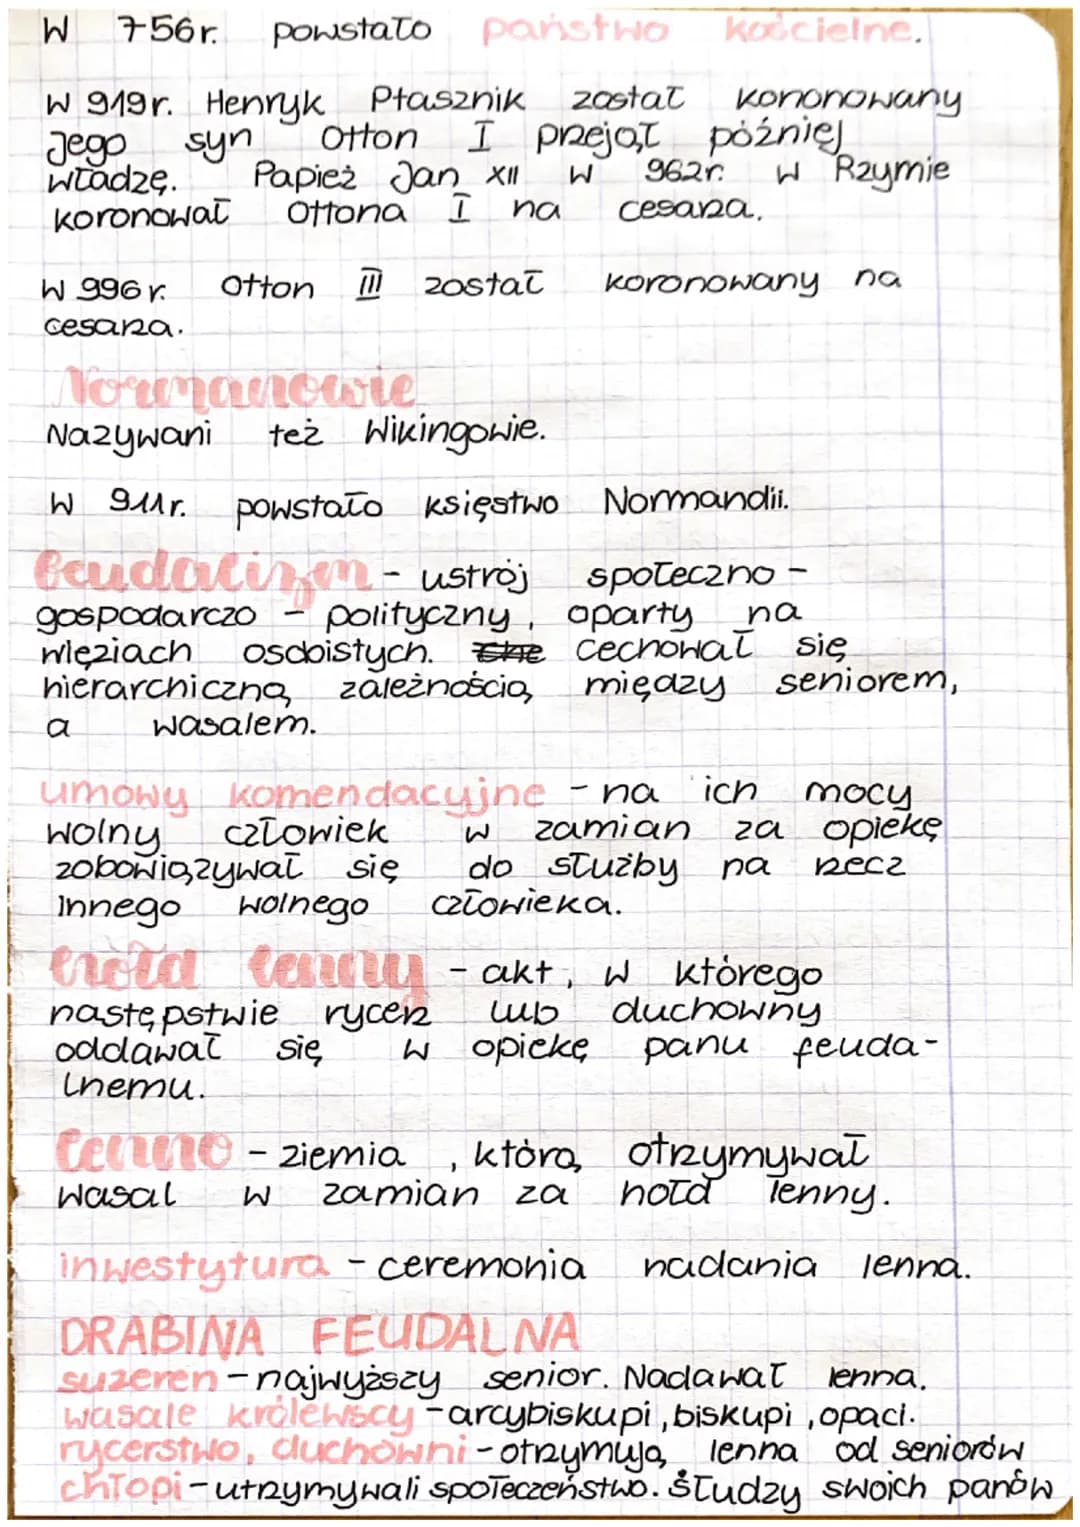 W 756r. powstało państwo kościelne.
W 919r. Henryk Ptasznik został kononowany
Jego syn Otton I przejął później
władzę. Papież Jan XII w 962r. w Rzymie
koronował Ottona I na cesarza.
W 996r. Otton III został koronowany na
cesarza.
Normanowie
Nazywani też Wikingowie.
W 911r. powstało księstwo Normandii.
feudalizm - ustrój społeczno -
gospodarczo - polityczny, oparty na
więziach osobistych. Cechował się
hierarchiczną zależnością między seniorem,
a wasalem.
umowy komendacyjne - na ich mocy
wolny człowiek w zamian za opiekę
zobowiązywał się do służby na rzecz
innego wolnego człowieka.
hołd lenny - akt, w którego
następstwie rycerz lub duchowny
oddawał się w opiekę panu feuda-
lnemu.
Lenno - ziemia, którą otrzymywał
wasal w zamian za hołd lenny.
inwestytura - ceremonia nadania lenna.
DRABINA FEUDALNA
suzeren - najwyższy senior. Nadawał lenna.
wasale królewscy - arcybiskupi, biskupi, opaci.
rycerstwo, duchowni - otrzymują lenna od seniorów
chłopi - utrzymywali społeczeństwo. Słudzy swoich panów